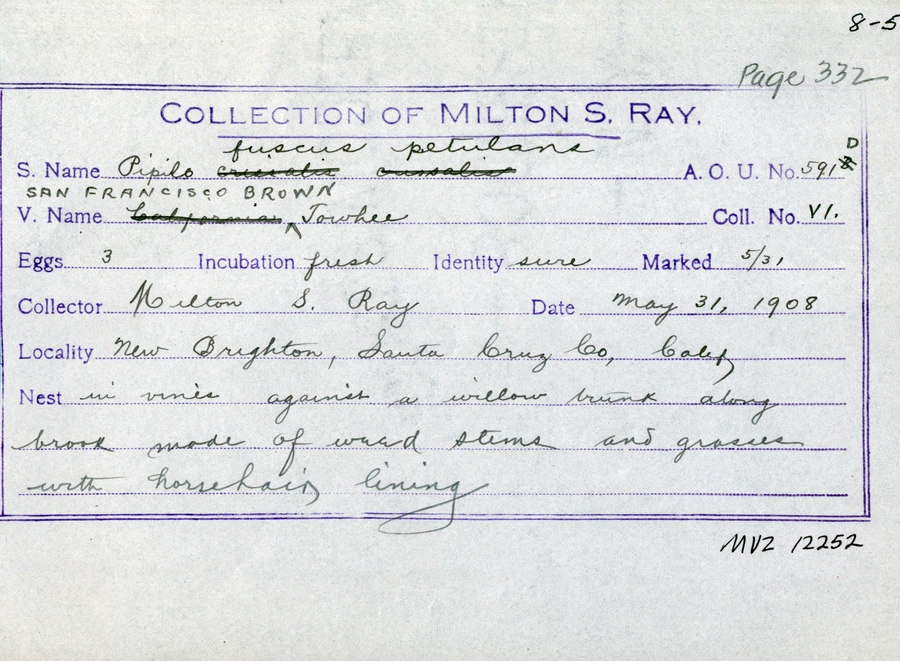 8-5
Page 332
COLLECTION OF MILTON S. RAY.
fuscus petulans D
S. Name Pipilo crissalis crissalis A. O. U. No. 591
SAN FRANCISCO BROWN
V. Name California Towhee Coll. No. VI.
Eggs 3 Incubation fresh Identity sure Marked 5/31
Collector Milton S. Ray Date May 31, 1908
Locality New Brighton, Santa Cruz Co, Calif
Nest in vines against a willow trunk along
brook made of weed stems and grasses
with horsehair lining
MVZ 12252